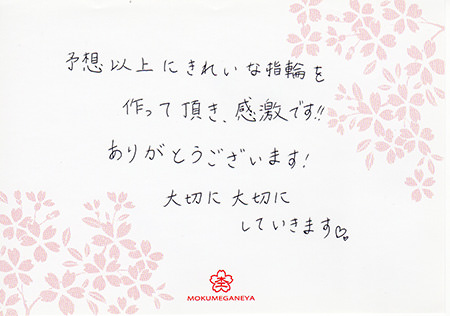 予想以上にきれいな指輪を
作って頂き、感激です!!
ありがとうございます!
大切に大切に
していきます♡
MOKUMEGANEYA